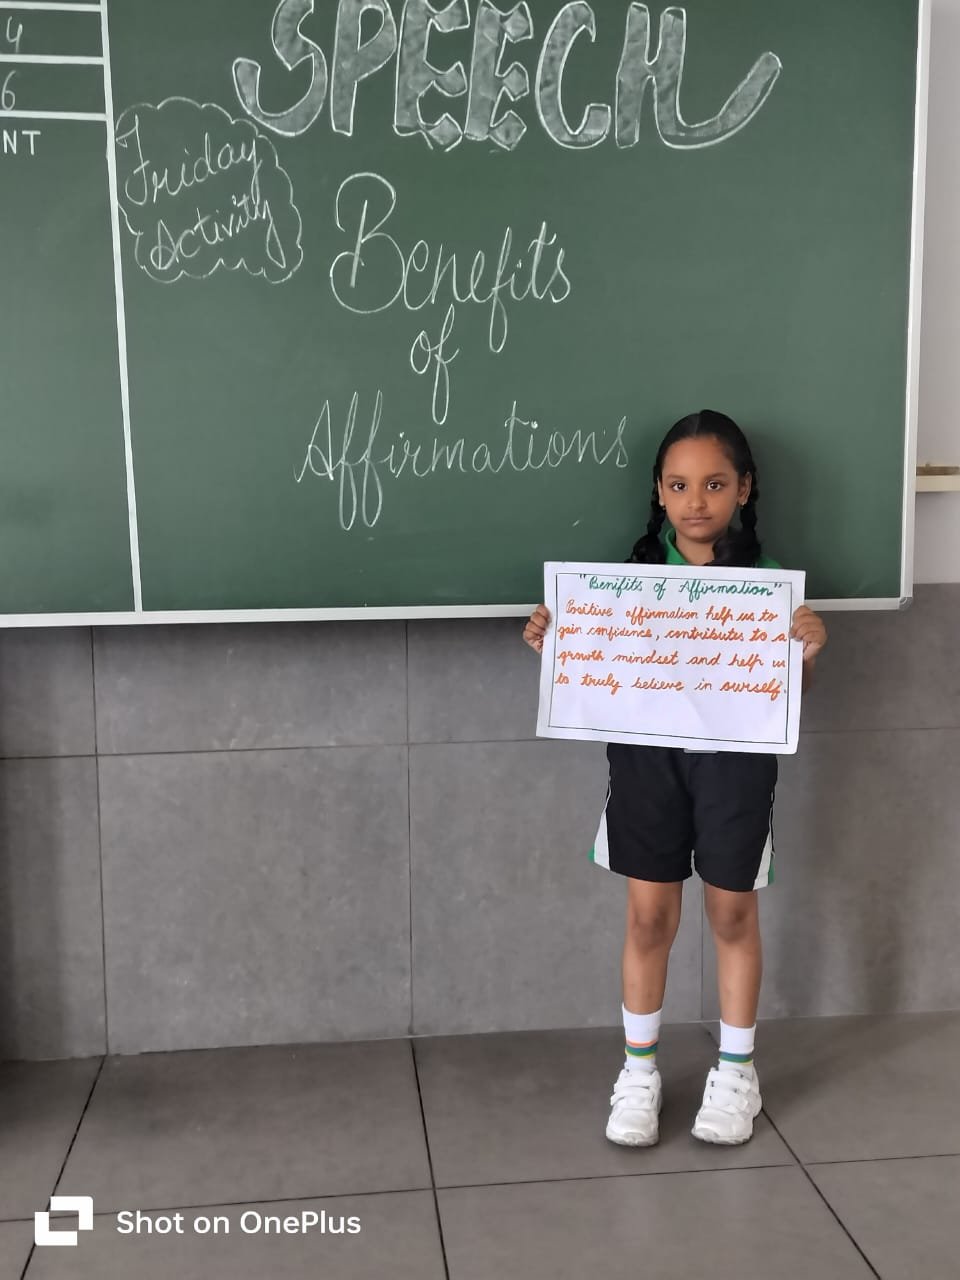 4
6
NT
SPEECH
Friday
Activity
Benefits
of
Affirmations
"Benifits of Affirmation"
Positive affirmation help us to
gain confidence, contributes to a
growth mindset and help us
to truly believe in ourself.
Shot on OnePlus